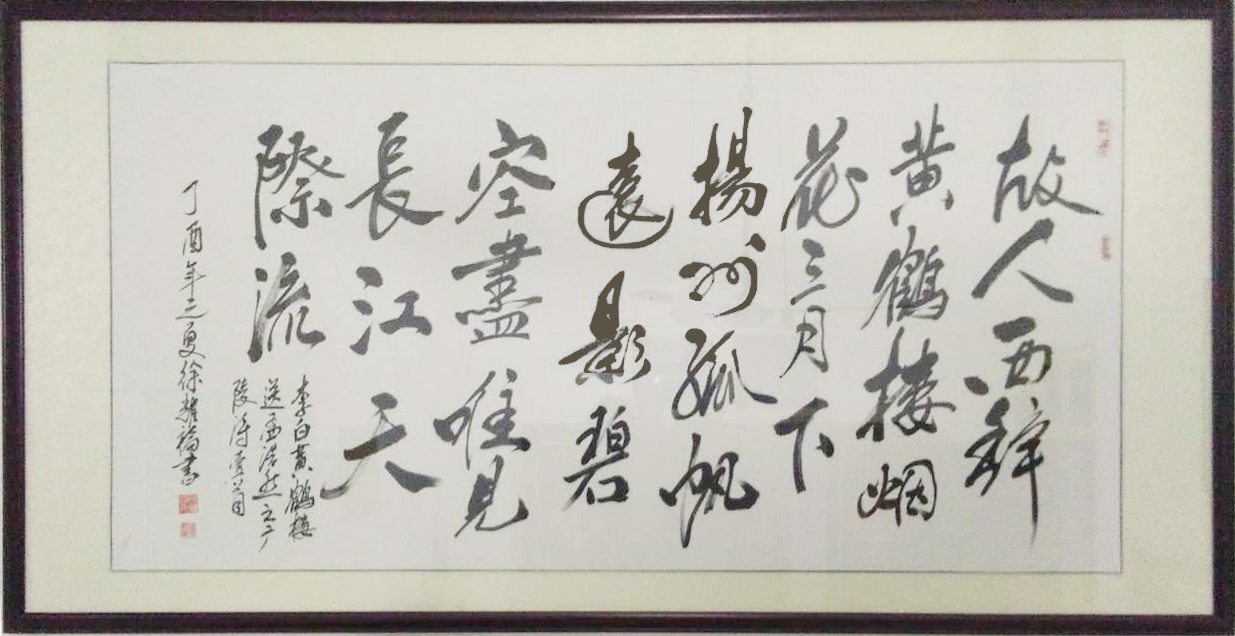 故人西辞
黄鶴楼烟
花三月下
揚州孤帆
遠影碧
空盡唯見
長江天
際流
李白黄鶴楼
送孟浩然之广
陵诗壹首
丁酉年之夏徐耀福書